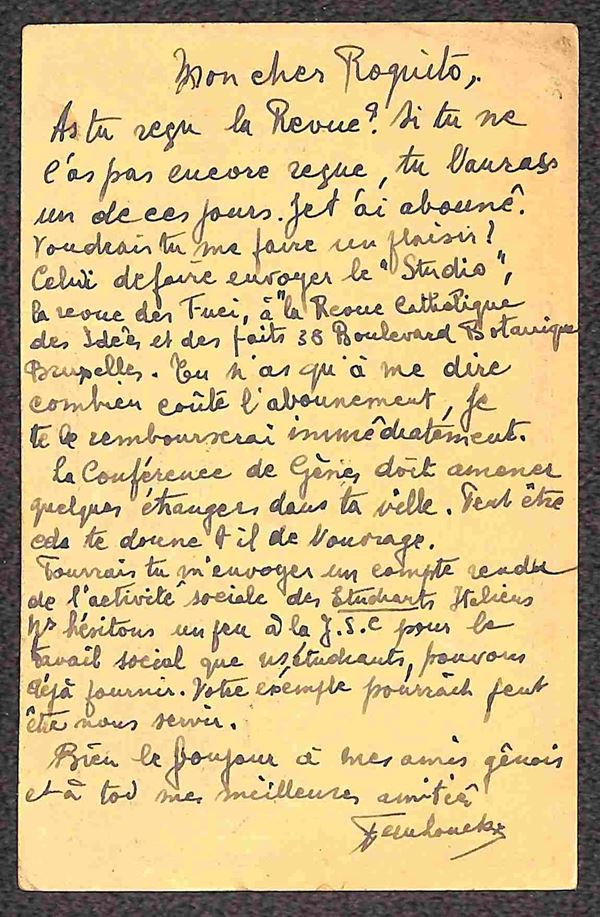 Mon cher Roquito,
As tu reçu la Revue? Si tu ne
l'as pas encore reçue, tu l'auras
un de ces jours. Je t'ai abonné.
Voudrais tu me faire un plaisir?
Celui de faire envoyer le "Studio",
la revue des Fuci, à "la Revue Catholique
des Idées et des faits 38 Boulevard Botanique
Bruxelles. Tu n'as qu'à me dire
combien coûte l'abonnement, je
te le rembourserai immédiatement.
La Conférence de Gênes doit amener
quelques étrangers dans ta ville. Peut être
cela te donne t il de l'ouvrage.
Pourrais tu m'envoyer un compte rendu
de l'activité sociale des Etudiants Italiens
Ns hésitons un peu à la J.S.C pour le
travail social que ns, étudiants, pouvons
déjà fournir. Votre exemple pourrait peut
être nous servir.
Bien le bonjour à mes amis gênois
et à toi mes meilleures amitiés